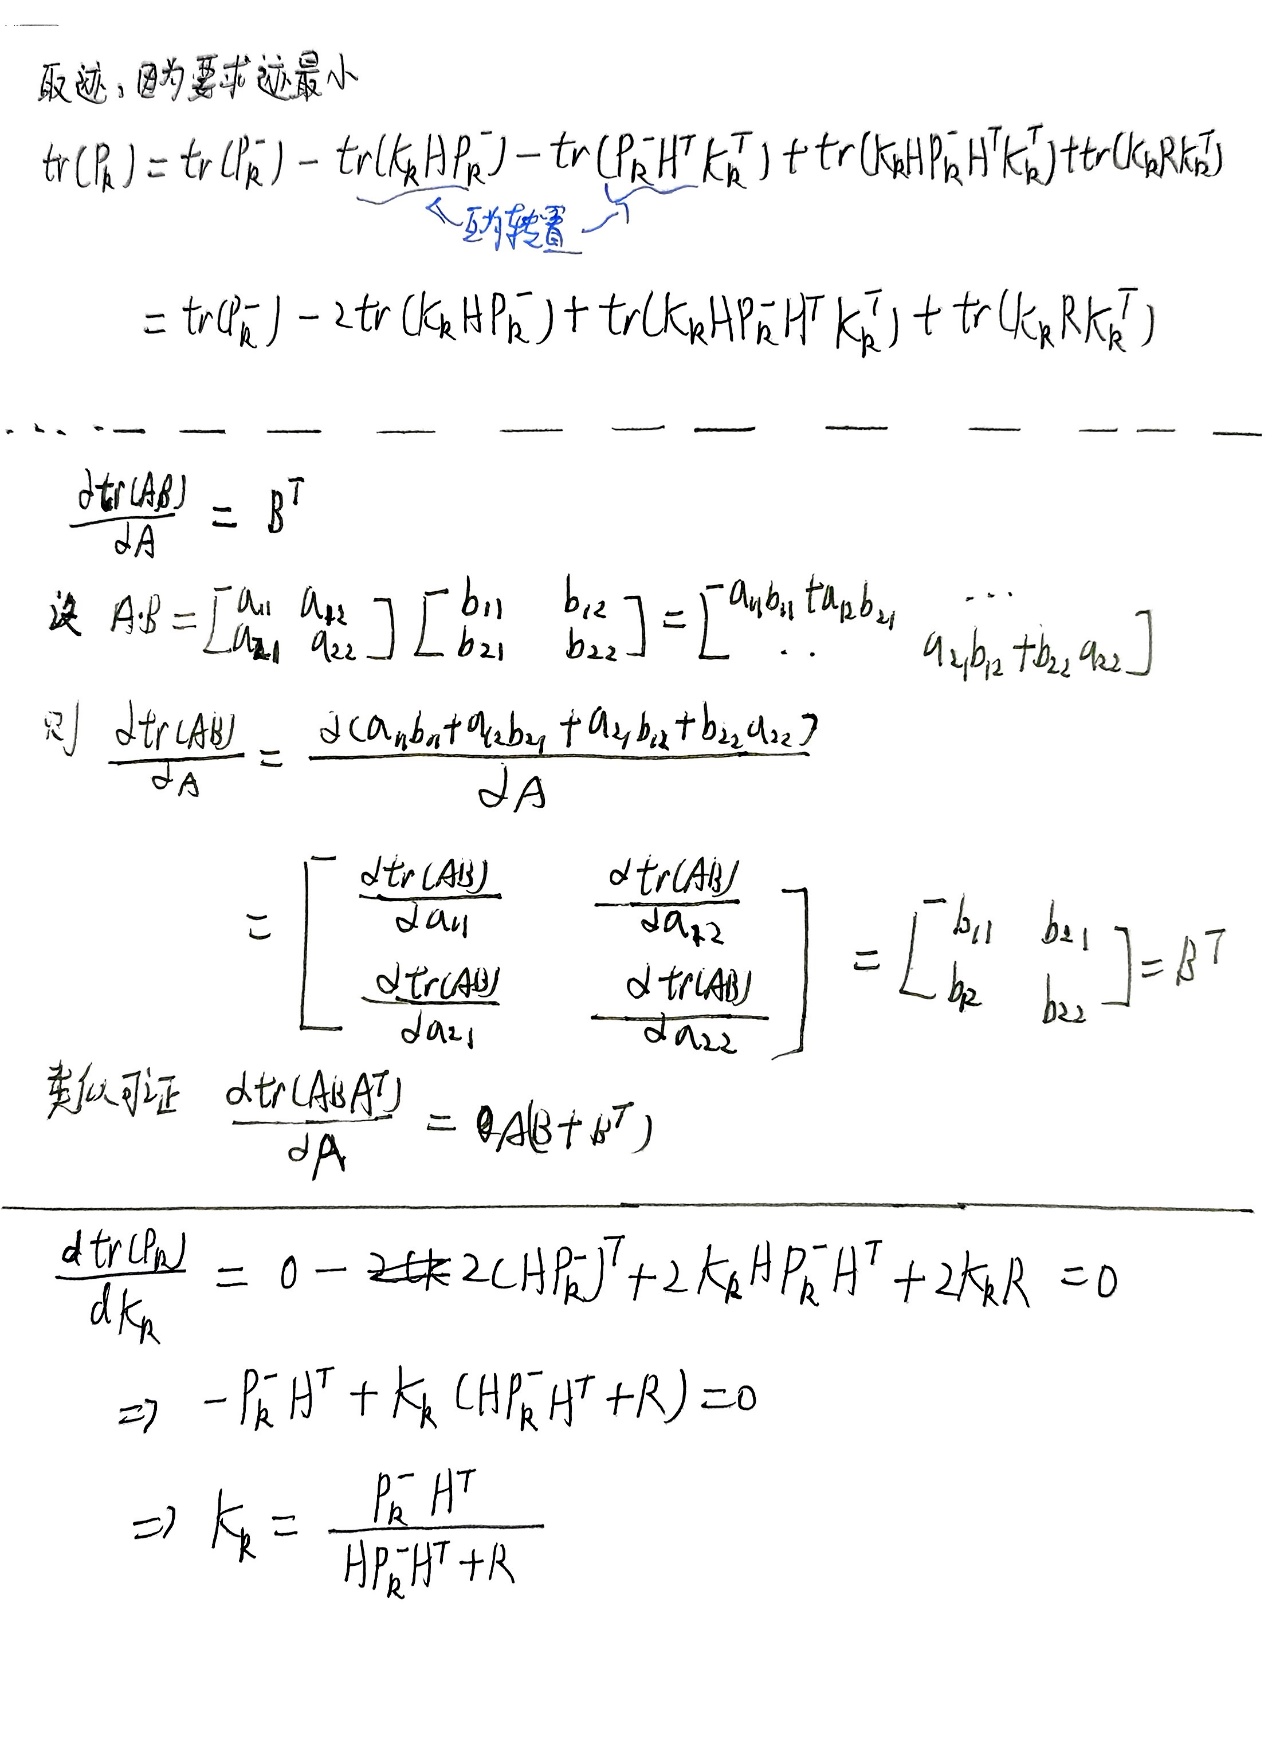 取迹，因为要求迹最小
tr(P_k) = tr(P_k^-) - tr(K_k H P_k^-) - tr(P_k^- H^T K_k^T) + tr(K_k H P_k^- H^T K_k^T) + tr(K_k R K_k^T)
互为转置
= tr(P_k^-) - 2tr(K_k H P_k^-) + tr(K_k H P_k^- H^T K_k^T) + tr(K_k R K_k^T)
dtr(AB)/dA = B^T
设 A·B = [a11 a12; a21 a22] [b11 b12; b21 b22] = [a11b11 + a12b21 ...; .. a21b12 + b22a22]
则 dtr(AB)/dA = d(a11b11 + a12b21 + a21b12 + b22a22)/dA
= [dtr(AB)/da11 dtr(AB)/da12; dtr(AB)/da21 dtr(AB)/da22] = [b11 b21; b12 b22] = B^T
类似可证 dtr(ABA^T)/dA = A(B + B^T)
dtr(P_k)/dK_k = 0 - 2(HP_k^-)^T + 2K_k H P_k^- H^T + 2K_k R = 0
⇒ -P_k^- H^T + K_k (HP_k^- H^T + R) = 0
⇒ K_k = P_k^- H^T / (HP_k^- H^T + R)